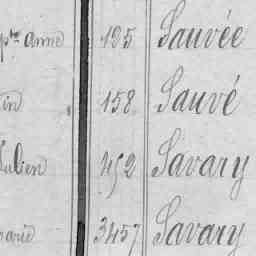 pre anne 195 Sauvée
in 158 Sauvé
Julien 452 Savary
marie 3457 Savary